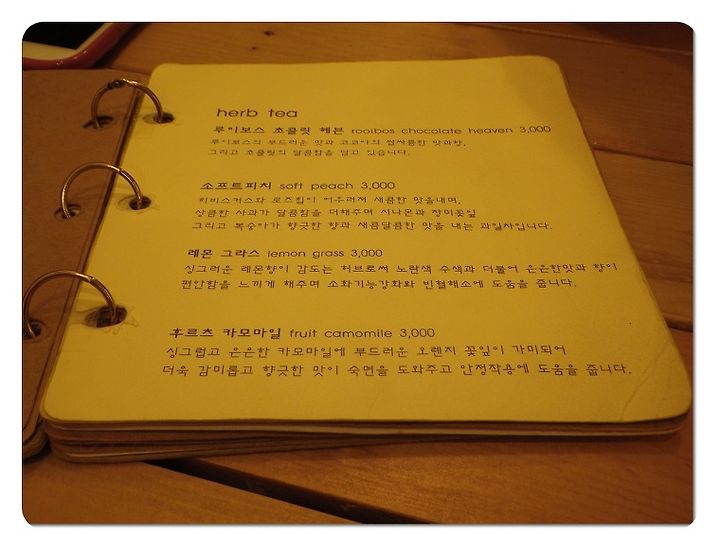 herb tea
루이보스 초콜릿 헤븐 rooibos chocolate heaven 3,000
루이보스의 부드러운 맛과 코코아의 쌉싸름한 맛과향,
그리고 초콜릿의 달콤함을 담고 있습니다.
소프트피치 soft peach 3,000
히비스커스와 로즈힙이 어우러져 새콤한 맛을내며,
상큼한 사과가 달콤함을 더해주며 시나몬과 장미꽃잎
그리고 복숭아가 향긋한 향과 새콤달콤한 맛을 내는 과일차입니다.
레몬 그라스 lemon grass 3,000
싱그러운 레몬향이 감도는 허브로써 노란색 수색과 더불어 은은한맛과 향이
편안함을 느끼게 해주며 소화기능강화와 빈혈해소에 도움을 줍니다.
후르츠 카모마일 fruit camomile 3,000
싱그럽고 은은한 카모마일에 부드러운 오렌지 꽃잎이 가미되어
더욱 감미롭고 향긋한 맛이 숙면을 도와주고 안정작용에 도움을 줍니다.